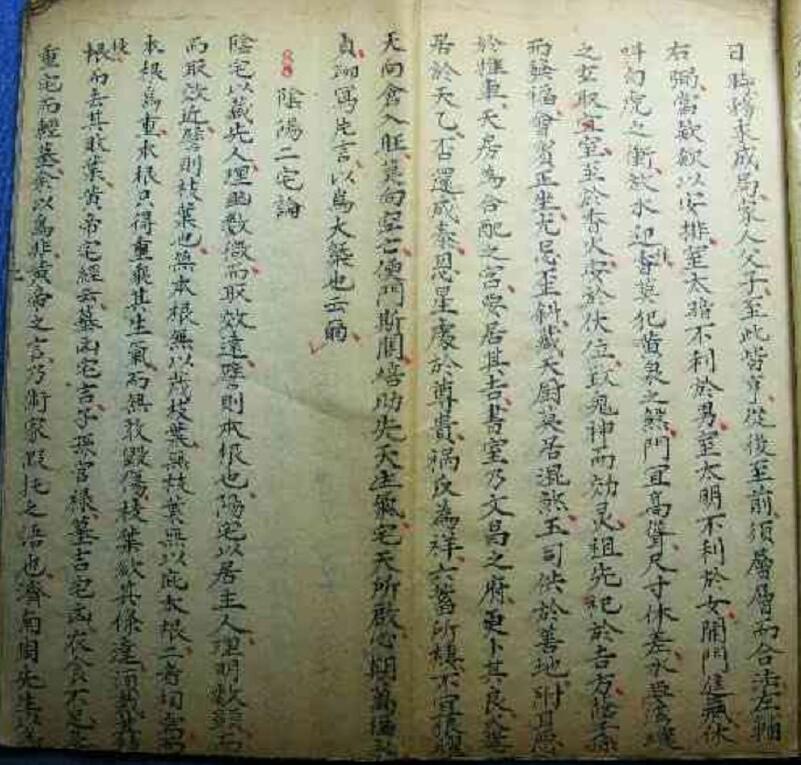 日時務求成局家人父子至此皆亨從後至前須層層而合法左輔
右弼當欵欵以安排室太暗不利於男室太明不利於女開門迎氣休
叫白虎之衝放水迎門莫犯黃泉之煞門宜高聳尺寸休差水要
之女取宜室至於香火安於伏位致鬼神而効灵祖先祀於吉方蔭子孫
而無福會賓正坐尤忌歪斜藏天厨莫居混煞玉司供於善地附耳
於推車天居為合配之宮要居其吉書室乃文昌之府更卜其良
居於天乙否還成泰恩星處於尊貴禍反為祥六畜所棲不宜
天向舍入旺莫向空亡便門斯開 助先天生氣宅天所啟 期萬福
貞 寫片言以為大築也云爾
陰陽二宅論
陰宅以藏先人理幽数微而取效遠譬則本根也陽宅以居生人理明数顯而
而取效近譬則枝葉也無本根無以茂枝葉無枝葉無以庇本根二者相需
本根為重本根只得重乘其生氣而無敢毀傷枝葉欲其條達須栽其
根而去其敗葉黃帝宅經云墓凶宅吉子孫官祿墓吉宅凶衣食不足
重宅而輕墓余以為非黃帝之言乃術家 托之語也濟南周先生